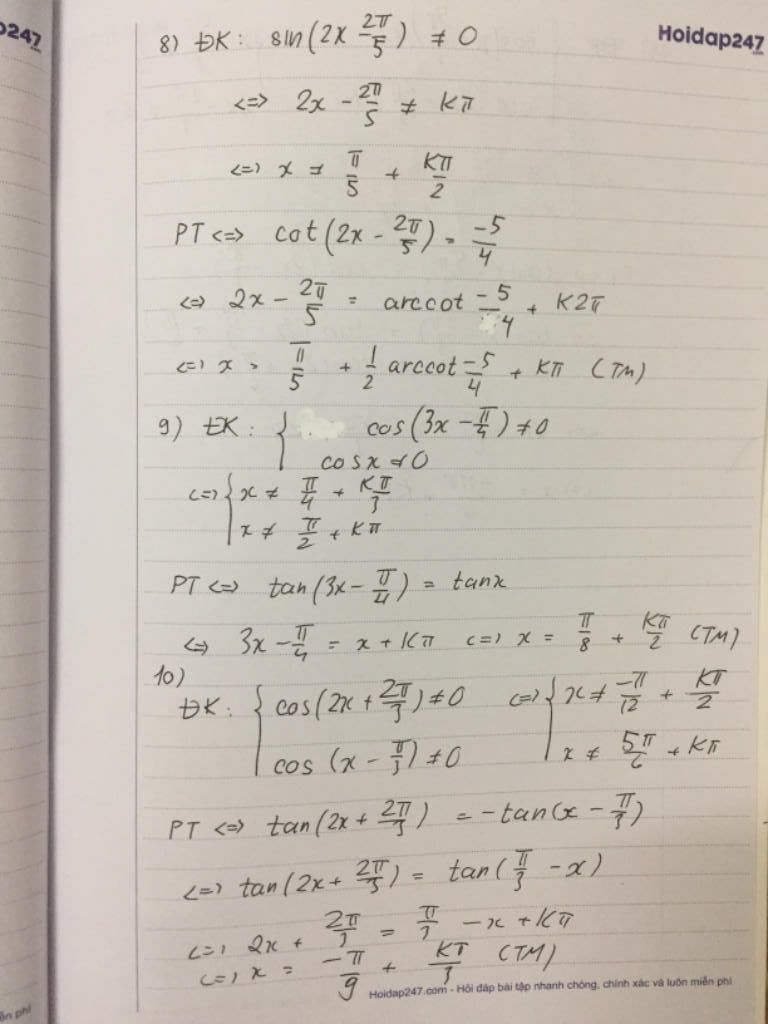 247
Hoidap247
8) ĐK: sin(2x - 2π/5) ≠ 0
<=> 2x - 2π/5 ≠ Kπ
<=> x ≠ π/5 + Kπ/2
PT <=> cot(2x - 2π/5) = -5/4
<=> 2x - 2π/5 = arccot -5/4 + K2π
<=> x = π/5 + 1/2 arccot -5/4 + Kπ (TM)
9) ĐK: { cos(3x - π/4) ≠ 0
cosx ≠ 0
<=> { x ≠ π/4 + Kπ/3
x ≠ π/2 + Kπ
PT <=> tan(3x - π/4) = tanx
<=> 3x - π/4 = x + Kπ <=> x = π/8 + Kπ/2 (TM)
10)
ĐK: { cos(2x + 2π/3) ≠ 0 <=> { x ≠ -π/12 + Kπ/2
cos (x - π/3) ≠ 0 x ≠ 5π/6 + Kπ
PT <=> tan(2x + 2π/3) = -tan(x - π/3)
<=> tan(2x + 2π/3) = tan(π/3 - x)
<=> 2x + 2π/3 = π/3 - x + Kπ
<=> x = -π/9 + Kπ/3 (TM)
Hoidap247.com - Hỏi đáp bài tập nhanh chóng, chính xác và luôn miễn phí
ễn phí